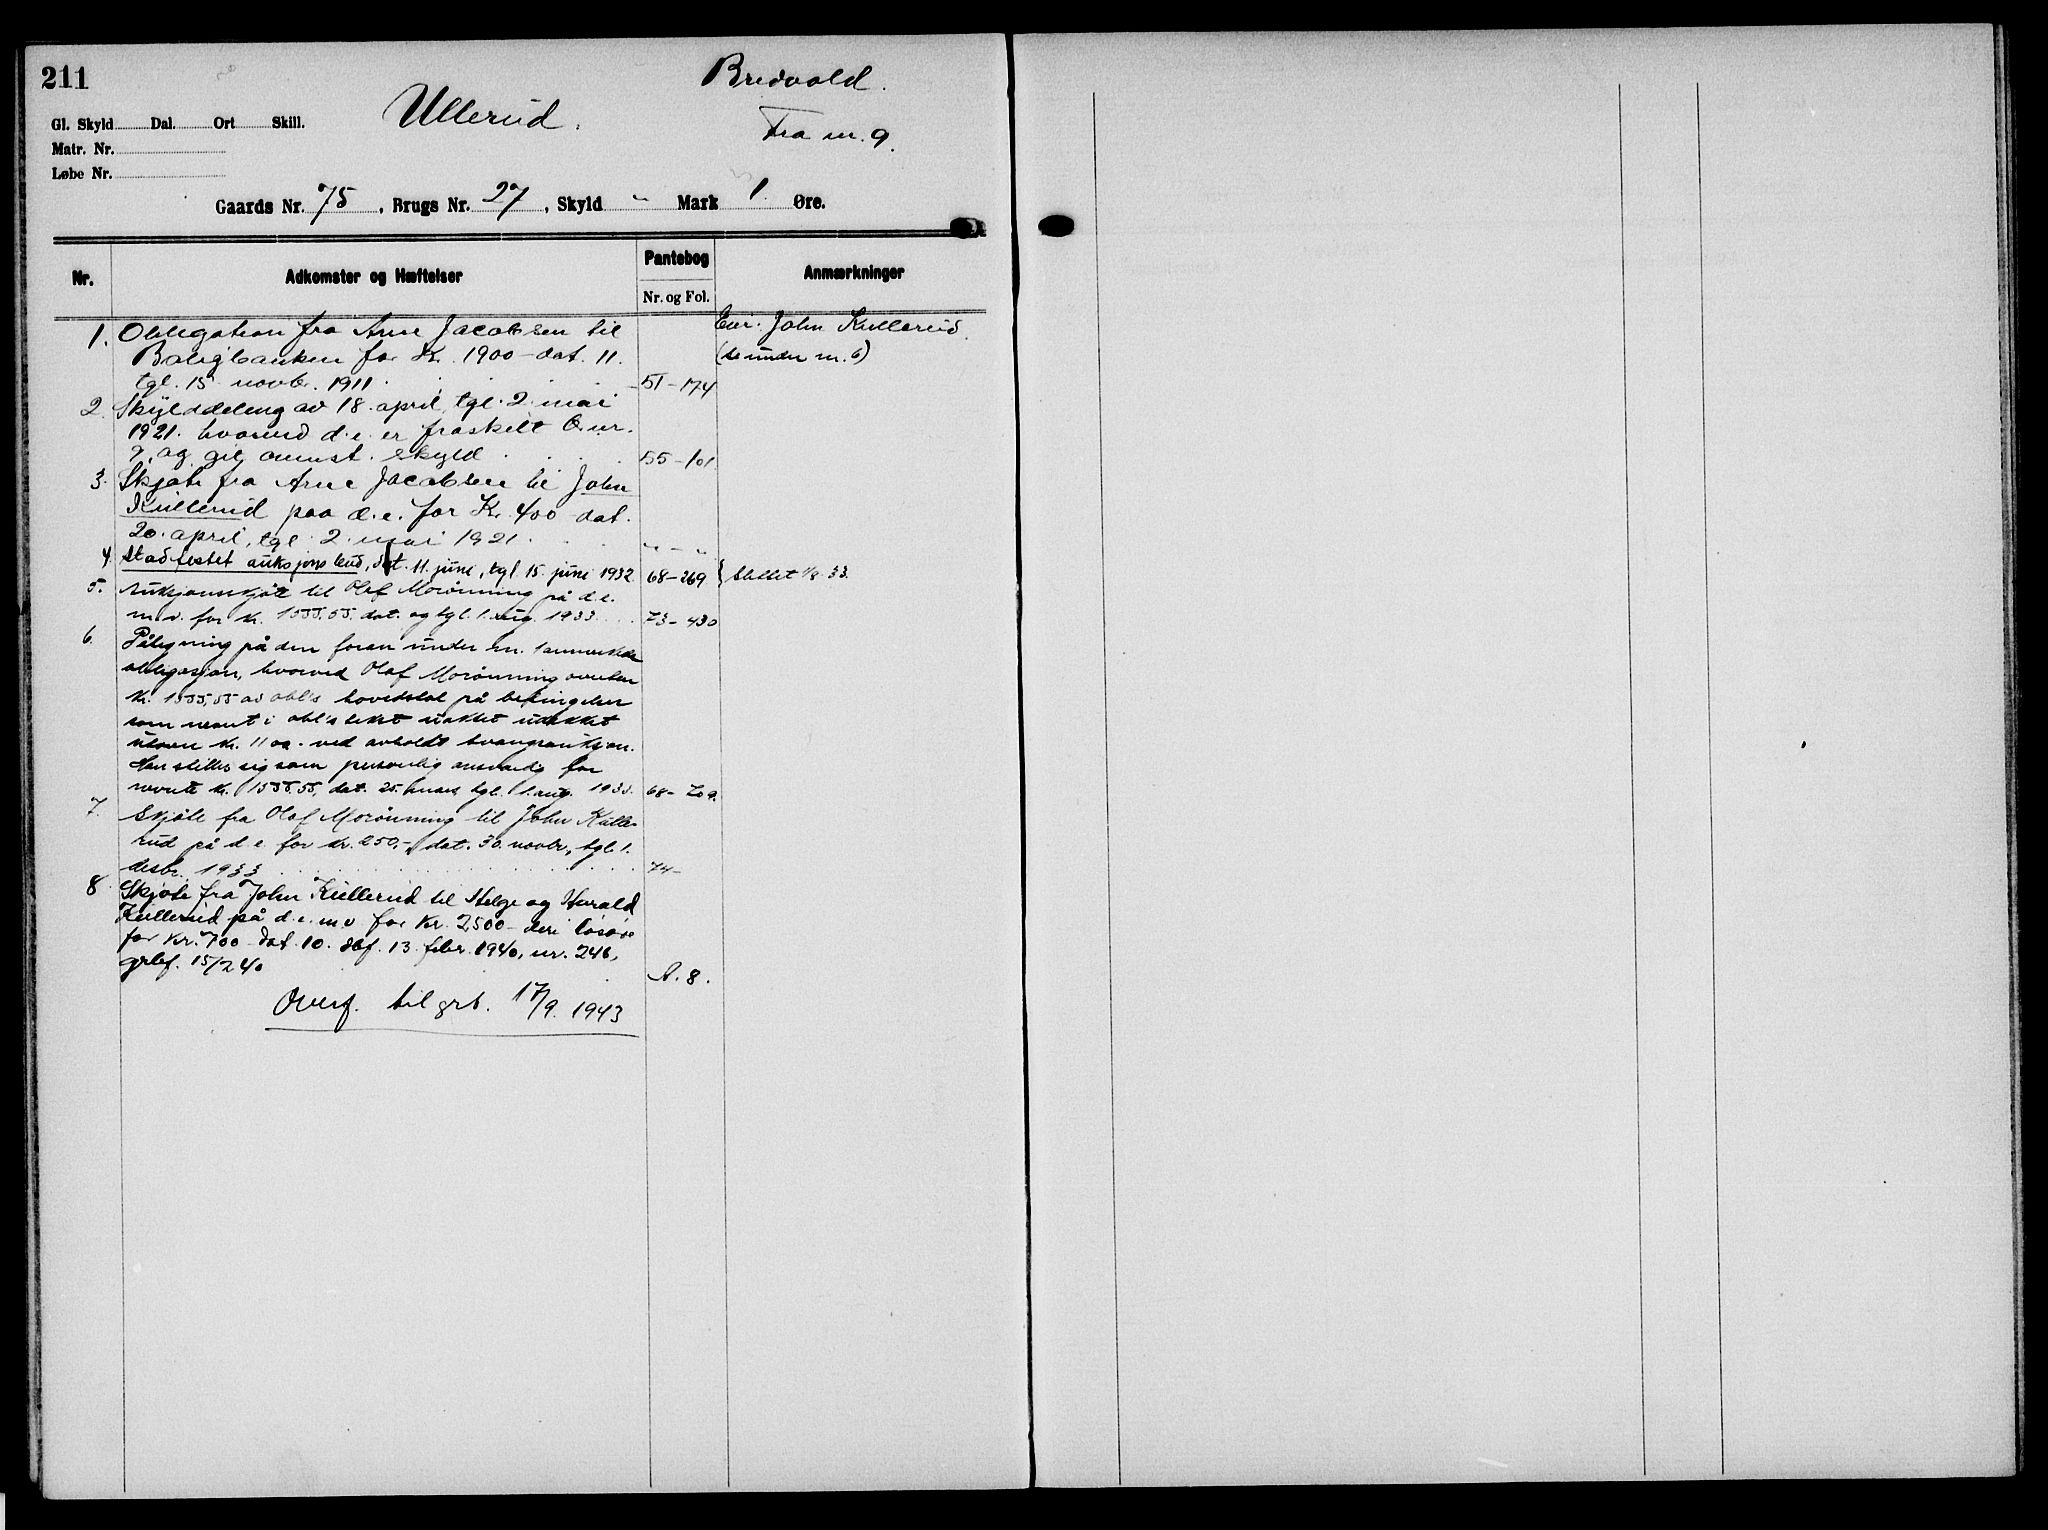 211
Bredvold.
Ullerud.
Fra nr. 9.
Gl. Skyld Dal. Ort Skill.
Matr. Nr.
Løbe Nr.
Gaards Nr. 75, Brugs Nr. 27, Skyld " Mark 1 Øre.
Nr. Adkomster og Hæftelser Pantebog Nr. og Fol. Anmærkninger
1. Obligation fra Arne Jacobsen til Eier: John Kullerud.
Boligbanken for Kr. 1900 – dat. 11. (se under nr. 6)
tgl. 15. novbr. 1911 51 – 174
2. Skylddeling av 18. april, tgl. 2. mai
1921. hvorved d. e. er fraskilt B. nr.
9, og git ovennst. skyld 55 – 101
3. Skjøte fra Arne Jacobsen til John
Kullerud paa d. e. for Kr. 400 – dat.
20. april, tgl. 2. mai 1921. " – "
4. Stadfestet auksjonsbud, dat. 11. juni, tgl. 15. juni 1932. 68 – 269 } Slettet 1/8. 33.
5. Auksjonsskjøte til Olaf Morønning på d. e.
m. v. for kr. 1555,55. dat. og tgl. 1. aug. 1933 73 – 430
6. Påtegning på den foran under nr. 1 anmerkede
obligasjon, hvorved Olaf Morønning overtar
kr. 1555,55 av obl's hovedstol på betingelser
som nevnt i obl's tekst
kr. 1100.- ved avholdt tvangsauksjon.
Han stiller sig som personlig ansvarlig for
nevnte kr. 1555,55, dat. 25. mars tgl. 1. aug. 1933. 68 – 709.
7. Skjøte fra Olaf Morønning til John Kulle-
rud på d. e. for kr. 250,-, dat. 30. novbr., tgl. 1.
desbr. 1933 74 –
8. Skjøte fra John Kullerud til Helge og Harald
Kullerud på d. e. m. v for Kr. 2500 – deri løsøre
for Kr. 700 – dat. 10. dbf. 13. febr. 1940, nr. 246,
grbf. 15/2 40 A. 8.
Overf. til grb. 17/9. 1943